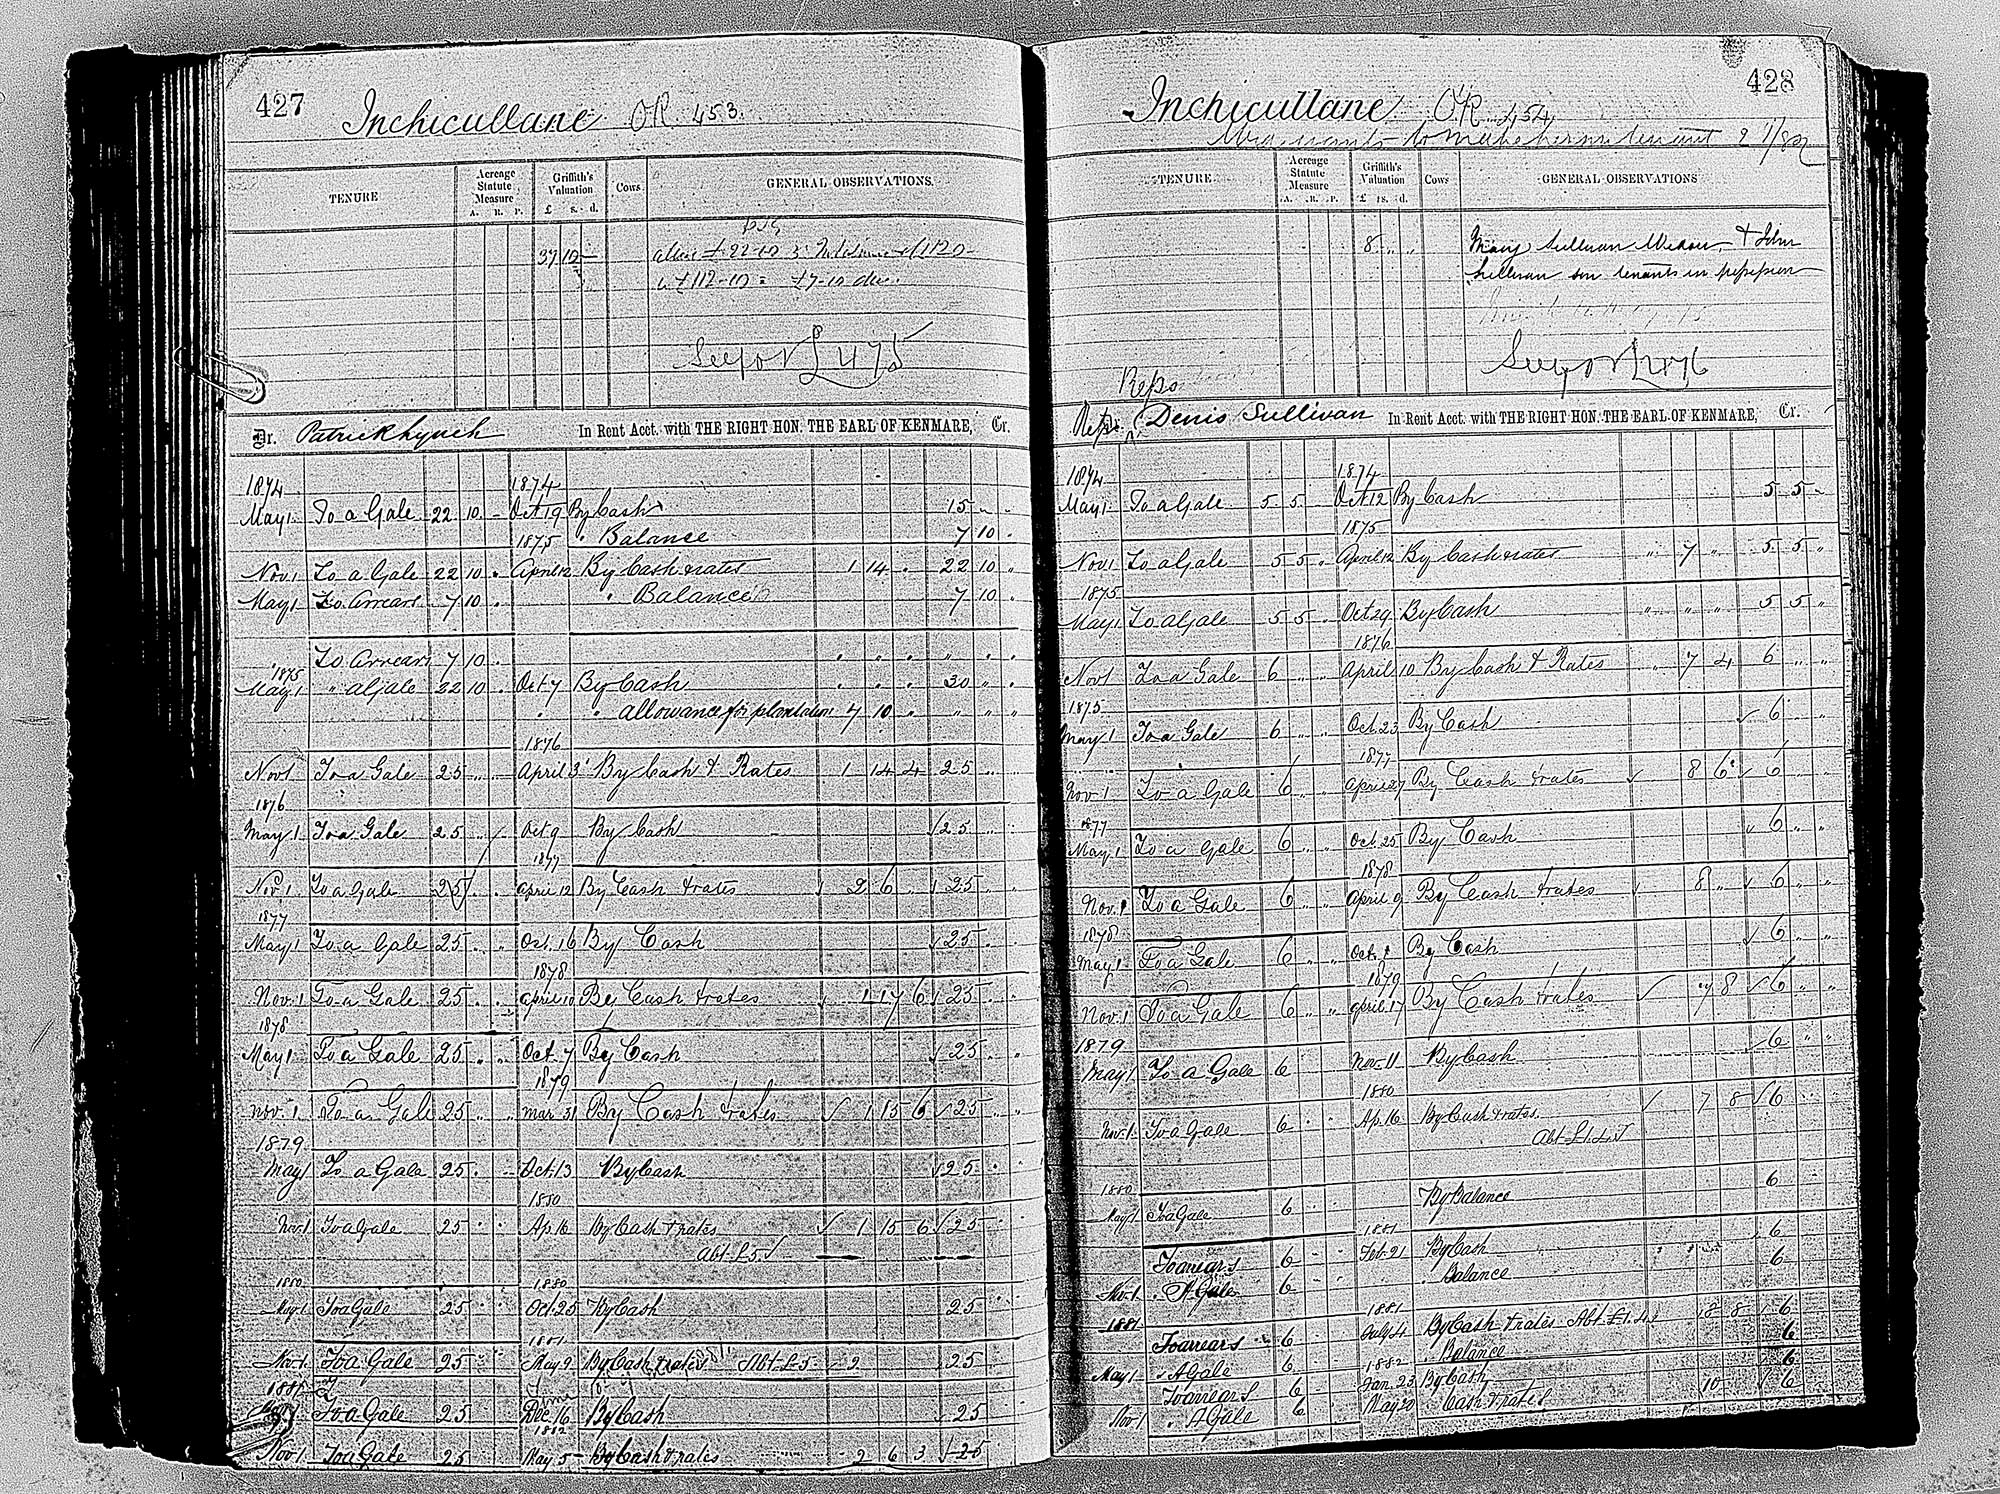 427
Inchicullane OR. 453.
TENURE
Acreage Statute Measure
A. R. P.
Griffith's Valuation
£ s. d.
Cows.
GENERAL OBSERVATIONS.
37 10 —
£112-10 = £7-10
475
Dr. Patrick Lynch In Rent Acct. with THE RIGHT HON. THE EARL OF KENMARE, Cr.
1874 1874
May 1 To a Gale 22 10 - Oct 19 By Cash 15 " "
1875 " Balance 7 10 "
Nov 1 To a Gale 22 10 " April 12 By Cash & rates 1 14 " 22 10 "
May 1 To Arrears 7 10 " " Balance 7 10 "
To Arrears 7 10 "
1875
May 1 " a Gale 22 10 " Oct 7 By Cash 30 " "
" " allowance for plantation 7 10 " " " "
1876
Nov 1 To a Gale 25 " " April 3 By Cash & Rates 1 14 4 25 " "
1876
May 1 To a Gale 25 " Oct 9 By Cash 25 " "
1877
Nov 1 To a Gale 25 " " April 12 By Cash & rates 2 6 " 25 " "
1877
May 1 To a Gale 25 " " Oct. 16 By Cash 25 " "
1878
Nov. 1 To a Gale 25 " " April 10 By Cash & rates 1 17 6 25 " "
1878
May 1 To a Gale 25 " " Oct. 7 By Cash 25 " "
1879
Nov. 1 To a Gale 25 " " Mar 31 By Cash & rates 1 15 6 25 " "
1879
May 1 To a Gale 25 " " Oct. 13 By Cash 25 "
1880
Nov 1 To a Gale 25 " " Ap. 16 By Cash & rates 1 15 6 25 "
Abt £5
1880 1880
May 1 To a Gale 25 " " Oct. 25 By Cash 25 "
1881
Nov 1 To a Gale 25 " " May 9 By Cash & rates Abt £5 2 25 "
1881
To a Gale 25 Dec 16 By Cash 25
1882
Nov 1 To a Gale 25 May 5 By Cash & rates 2 6 3 25
428
Inchicullane OR. 454
tenant
TENURE
Acreage Statute Measure
A. R. P.
Griffith's Valuation
£ s. d.
Cows
GENERAL OBSERVATIONS
8 " " Mary Sullivan Widow & John
Sullivan son tenants in possession
476
Reps
Reps. Denis Sullivan In Rent Acct. with THE RIGHT HON. THE EARL OF KENMARE, Cr.
1874 1874
May 1 To a Gale 5 5 " Oct 12 By Cash 5 5 -
1875
Nov 1 To a Gale 5 5 " April 12 By Cash & rates " 7 " 5 5 "
1875
May 1 To a Gale 5 5 " Oct 29 By Cash " " " 5 5 "
1876
Nov 1 To a Gale 6 " " April 10 By Cash & Rates " 7 4 6 " "
1875
May 1 To a Gale 6 " " Oct. 23 By Cash 6 " "
1877
Nov. 1 To a Gale 6 " " April 27 By Cash & rates 8 6 6 " "
1877
May 1 To a Gale 6 " " Oct. 25 By Cash 6 " "
1878
Nov. 1 To a Gale 6 " " April 9 By Cash & rates 8 " 6 " "
1878
May 1 To a Gale 6 " " Oct. By Cash 6 " "
1879
Nov. 1 To a Gale 6 " " April 17 By Cash & rates 7 8 6 " "
1879
May 1 To a Gale 6 Nov. 11 By Cash 6 " "
1880
Nov. 1 To a Gale 6 " " Ap. 16 By Cash & rates. 7 8 6
Abt £1.4
1880
May 1 To a Gale 6 " " By Balance 6
1881
To arrears 6 " " Feb. 21 By Cash 6
Nov 1 " A Gale 6 " " Balance 6
1881 1881
To arrears 6 " July 4 By Cash & rates Abt £1.4 8 8 6
May 1 " A Gale 6 Balance 6
1882
To arrears 6 Jan. 23 By Cash 6
Nov 1 " A Gale 6 May 20 Cash & rates 10 6